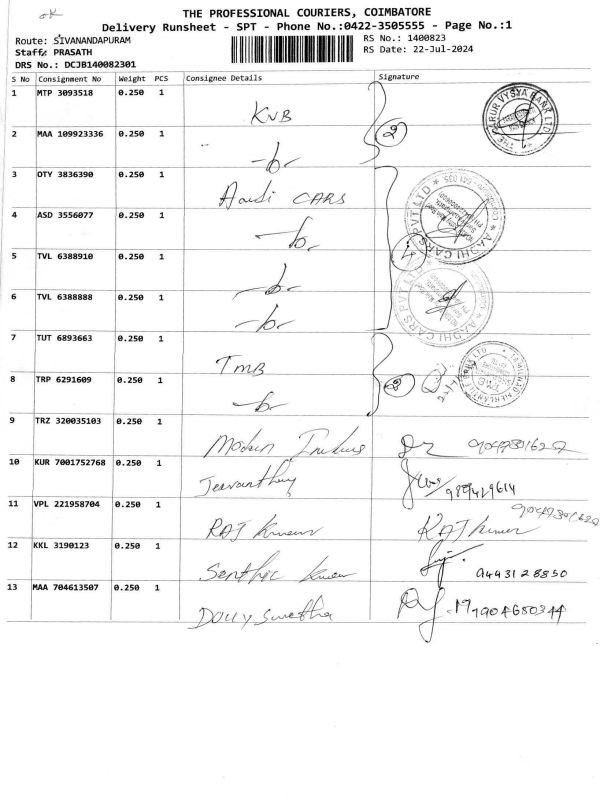 OK
THE PROFESSIONAL COURIERS, COIMBATORE
Delivery Runsheet - SPT - Phone No.:0422-3505555 - Page No.:1
Route: SIVANANDAPURAM
RS No.: 1400823
Staff: PRASATH
RS Date: 22-Jul-2024
DRS No.: DCJB140082301
S No Consignment No Weight PCS Consignee Details Signature
1 MTP 3093518 0.250 1 KVB
2
THE KARUR VYSYA BANK LTD
2 MAA 109923336 0.250 1 -do-
3 OTY 3836390 0.250 1 Aadi CARS
AADHI CARS PVT LTD
4 ASD 3556077 0.250 1 -do-
4
5 TVL 6388910 0.250 1 -do-
AADHI CARS PVT LTD
6 TVL 6388888 0.250 1 -do-
7 TUT 6893663 0.250 1 TMB
2
TAMILNAD MERCANTILE BANK LTD
8 TRP 6291609 0.250 1 -do-
9 TRZ 320035103 0.250 1 Modern
10 KUR 7001752768 0.250 1
989429614
11 VPL 221958704 0.250 1 RAJ Kumar
12 KKL 3190123 0.250 1 Senthil Kumar
9443128850
13 MAA 704613507 0.250 1 Dolly Swetha
7904680344